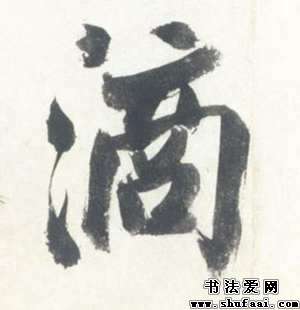 滴
书法爱网
www.shufaai.com